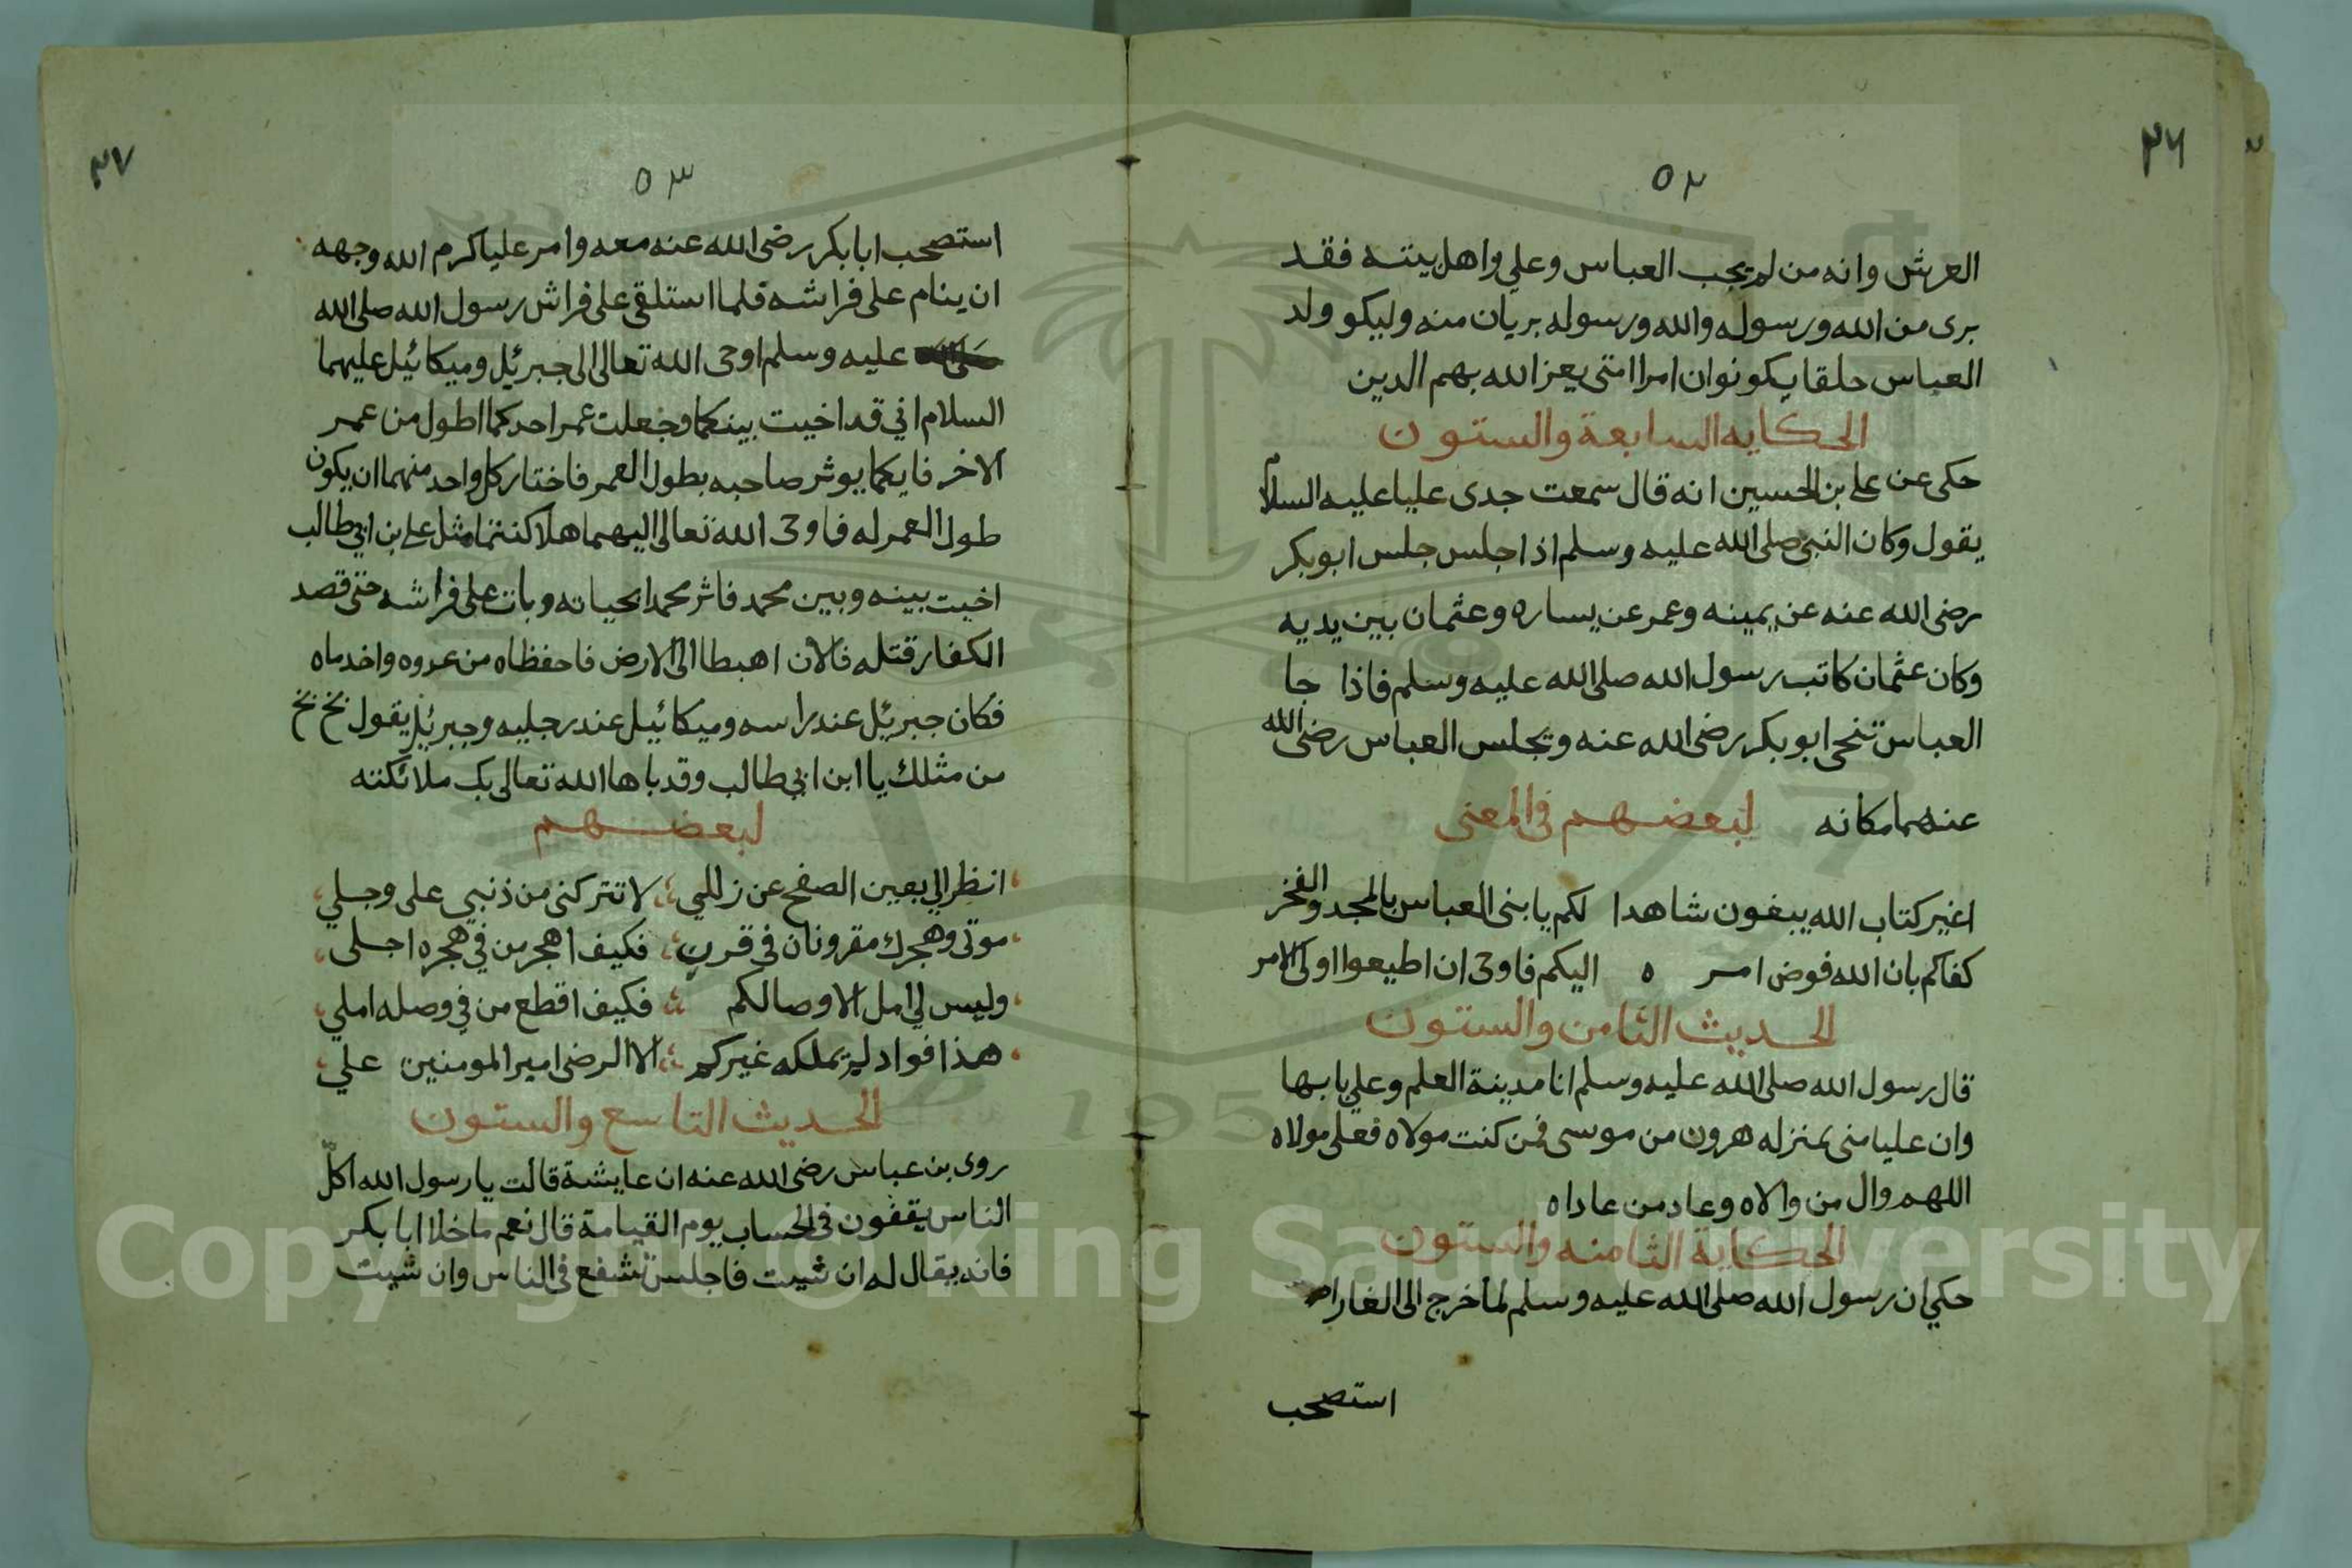 ٣٦
٥٢
العرش وانه من لم يحب العباس وعلي واهل بيته فقد
برى من الله ورسوله والله ورسوله بريان منه وليكو ولد
العباس حلقا يكونوان امرا امتى يعز الله بهم الدين
الحكايه السابعة والستون
حكى عن على بن الحسين انه قال سمعت جدى عليا عليه السلام
يقول وكان النبي صلى الله عليه وسلم اذا جلس جلس ابو بكر
رضى الله عنه عن يمينه وعمر عن يساره وعثمان بين يديه
وكان عثمان كاتب رسول الله صلى الله عليه وسلم فاذا جا
العباس تنحى ابو بكر رضى الله عنه ويجلس العباس رضى الله
عنهما مكانه لبعضهم فى المعنى
اغير كتاب الله يبغون شاهدا لكم يا بنى العباس بالمجد والفخر
كفاكم بان الله فوض امره اليكم فاوحى ان اطيعوا اولى الامر
الحديث الثامن والستون
قال رسول الله صلى الله عليه وسلم انا مدينة العلم وعلي بابها
وان عليا منى بمنزله هرون من موسى فمن كنت مولاه فعلى مولاه
اللهم وال من والاه وعاد من عاداه
الحكاية الثامنه والستون
حكي ان رسول الله صلى الله عليه وسلم لما خرج الى الغار
استصحب
٣٧
٥٣
استصحب ابا بكر رضى الله عنه معه وامر عليا كرم الله وجهه
ان ينام على فراشه فلما استلقى على فراش رسول الله صلى الله
عليه وسلم اوحى الله تعالى الى جبرئيل وميكائيل عليهما
السلام اني قد اخيت بينكما وجعلت عمر احدكما اطول من عمر
الاخر فايكما يوثر صاحبه بطول العمر فاختار كل واحد منهما ان يكون
طول العمر له فاوحى الله تعالى اليهما هلا كنتما مثل على بن ابي طالب
اخيت بينه وبين محمد فاثر محمدا بحياته وبات على فراشه حتى قصد
الكفار قتله فالان اهبطا الى الارض فاحفظاه من عدوه واخدماه
فكان جبرئيل عند راسه وميكائيل عند رجليه وجبرئيل يقول بخ بخ
من مثلك يا ابن ابي طالب وقد باها الله تعالى بك ملائكته
لبعضهم
انظر الي بعين الصفح عن زللي لا تتركنى من ذنبي على وجلي
موتى وهجرك مقرونان فى قرن فكيف اهجر من في هجره اجلى
وليس لي امل الا وصالكم فكيف اقطع من في وصله املي
هذا فواد لم يملكه غيركم الا الرضى امير المومنين علي
الحديث التاسع والستون
روى بن عباس رضى الله عنه ان عايشة قالت يا رسول الله اكل
الناس يقفون فى الحساب يوم القيامة قال نعم ما خلا ابا بكر
فانه يقال له ان شيت فاجلس تشفع فى الناس وان شيت
Copyright © King Saud University
195